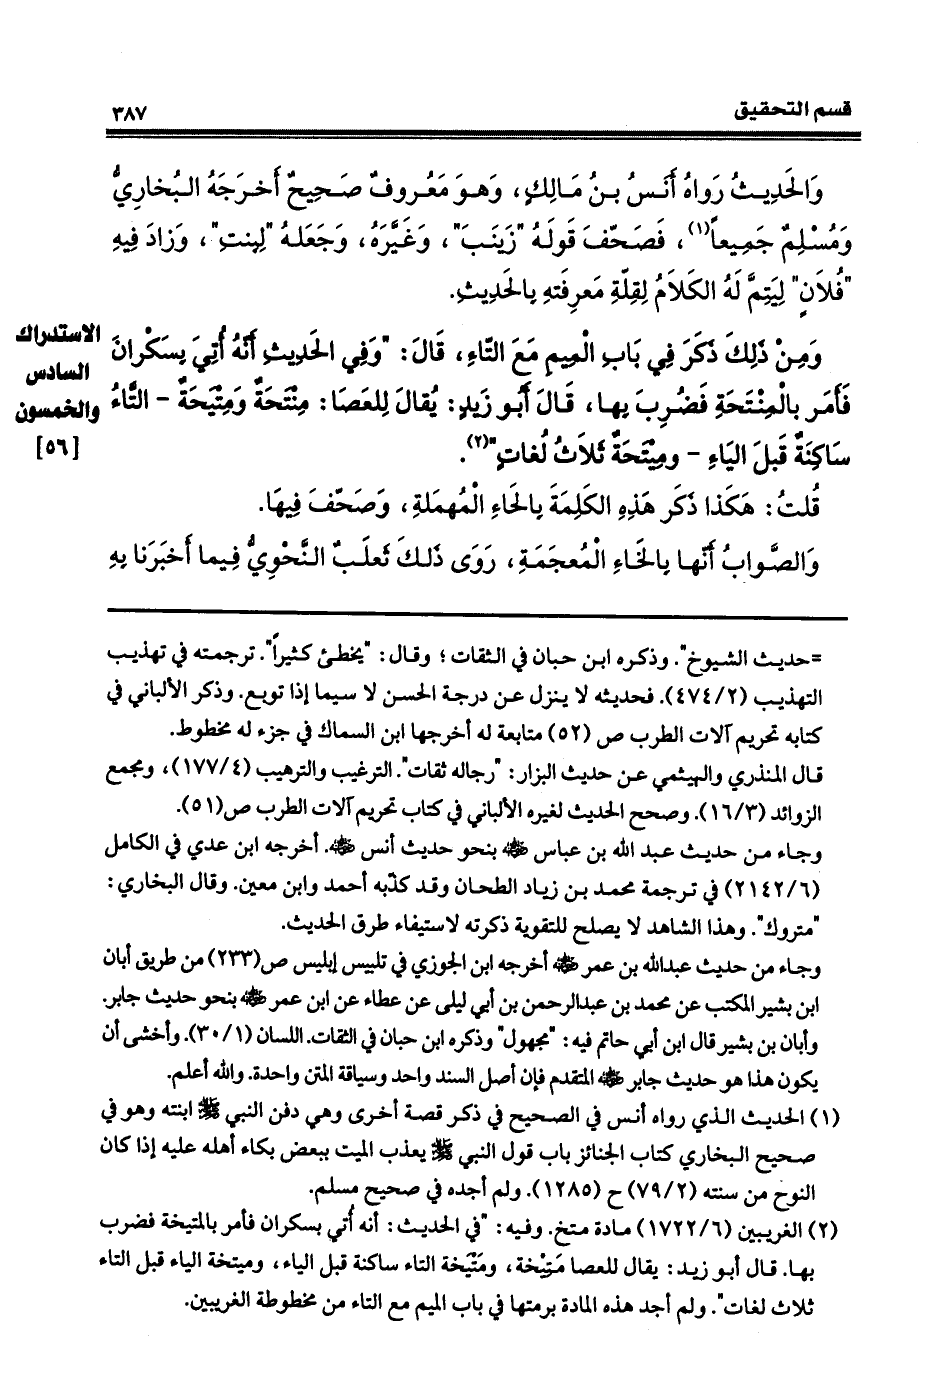 قسم التحقيق ٣٨٧
وَالحَدِيثُ رَواهُ أَنَسُ بنُ مَالِكٍ، وَهوَ مَعْروفٌ صَحِيحٌ أَخرَجَهُ البُخارِيُّ
وَمُسْلِمٌ جَمِيعاً(١)، فَصَحّفَ قَولَهُ "زَينَبَ"، وَغَيَّرَهُ، وَجَعَلهُ "لِبِنتِ"، وَزادَ فِيهِ
"فُلاَنٍ" لِيَتِمَّ لَهُ الكَلاَمُ لِقِلّةِ مَعرِفَتهِ بِالحَدِيثِ.
الاستدراك
السادس
والخمسون
[٥٦]
وَمِنْ ذَلِكَ ذَكَرَ فِي بَابِ الْمِيمِ مَعَ التّاءِ، قَالَ: "وَفِي الحَدِيثِ أَنَّهُ أُتِيَ بِسَكْرانَ
فَأَمَر بالْمِنْتَحَةِ فَضُرِبَ بِها، قَالَ أَبُو زَيدٍ: يُقالَ لِلعَصَا: مِنْتَحَةٌ وَمِتْيَحَةٌ - التَّاءُ
سَاكِنَةٌ قَبلَ اليَاءِ - ومِيْتَحَةٌ ثَلاَثُ لُغاتٍ"(٢).
قُلتُ: هَكَذا ذَكَر هَذِهِ الكَلِمَةَ بِالحَاءِ الْمُهمَلةِ، وَصَحّفَ فِيهَا.
وَالصَّوابُ أَنّها بِالخَاءِ الْمُعجَمَةِ، رَوَى ذَلكَ ثَعلَبٌ النَّحْوِيُّ فِيما أَخبَرَنا بِهِ
=حديث الشيوخ". وذكره ابن حبان في الثقات؛ وقال: "يخطئ كثيراً". ترجمته في تهذيب
التهذيب (٤٧٤/٢). فحديثه لا ينزل عن درجة الحسن لا سيما إذا توبع. وذكر الألباني في
كتابه تحريم آلات الطرب ص (٥٢) متابعة له أخرجها ابن السماك في جزء له مخطوط.
قال المنذري والهيثمي عن حديث البزار: "رجاله ثقات". الترغيب والترهيب (١٧٧/٤)، ومجمع
الزوائد (١٦/٣). وصحح الحديث لغيره الألباني في كتاب تحريم آلات الطرب ص(٥١).
وجاء من حديث عبد الله بن عباس ﷺ بنحو حديث أنس ﷺ. أخرجه ابن عدي في الكامل
(٢١٤٢/٦) في ترجمة محمد بن زياد الطحان وقد كذّبه أحمد وابن معين. وقال البخاري:
"متروك". وهذا الشاهد لا يصلح للتقوية ذكرته لاستيفاء طرق الحديث.
وجاء من حديث عبدالله بن عمر ﷺ أخرجه ابن الجوزي في تلبيس إبليس ص(٢٣٣) من طريق أبان
ابن بشير المكتب عن محمد بن عبدالرحمن بن أبي ليلى عن عطاء عن ابن عمر ﷺ بنحو حديث جابر.
وأبان بن بشير قال ابن أبي حاتم فيه: "مجهول" وذكره ابن حبان في الثقات. اللسان (٣٠/١). وأخشى أن
يكون هذا هو حديث جابر ﷺ المتقدم فإن أصل السند واحد وسياقة المتن واحدة. والله أعلم.
(١) الحديث الذي رواه أنس في الصحيح في ذكر قصة أخرى وهي دفن النبي ﷺ ابنته وهو في
صحيح البخاري كتاب الجنائز باب قول النبي ﷺ يعذب الميت ببعض بكاء أهله عليه إذا كان
النوح من سنته (٧٩/٢) ح (١٢٨٥). ولم أجده في صحيح مسلم.
(٢) الغريبين (١٧٢٢/٦) مادة متخ. وفيه: "في الحديث: أنه أُتي بسكران فأمر بالمتيخة فضرب
بها. قال أبو زيد: يقال للعصا مَتِيْخة، ومَتْيَخة التاء ساكنة قبل الياء، وميتخة الياء قبل التاء
ثلاث لغات". ولم أجد هذه المادة برمتها في باب الميم مع التاء من مخطوطة الغريبين.